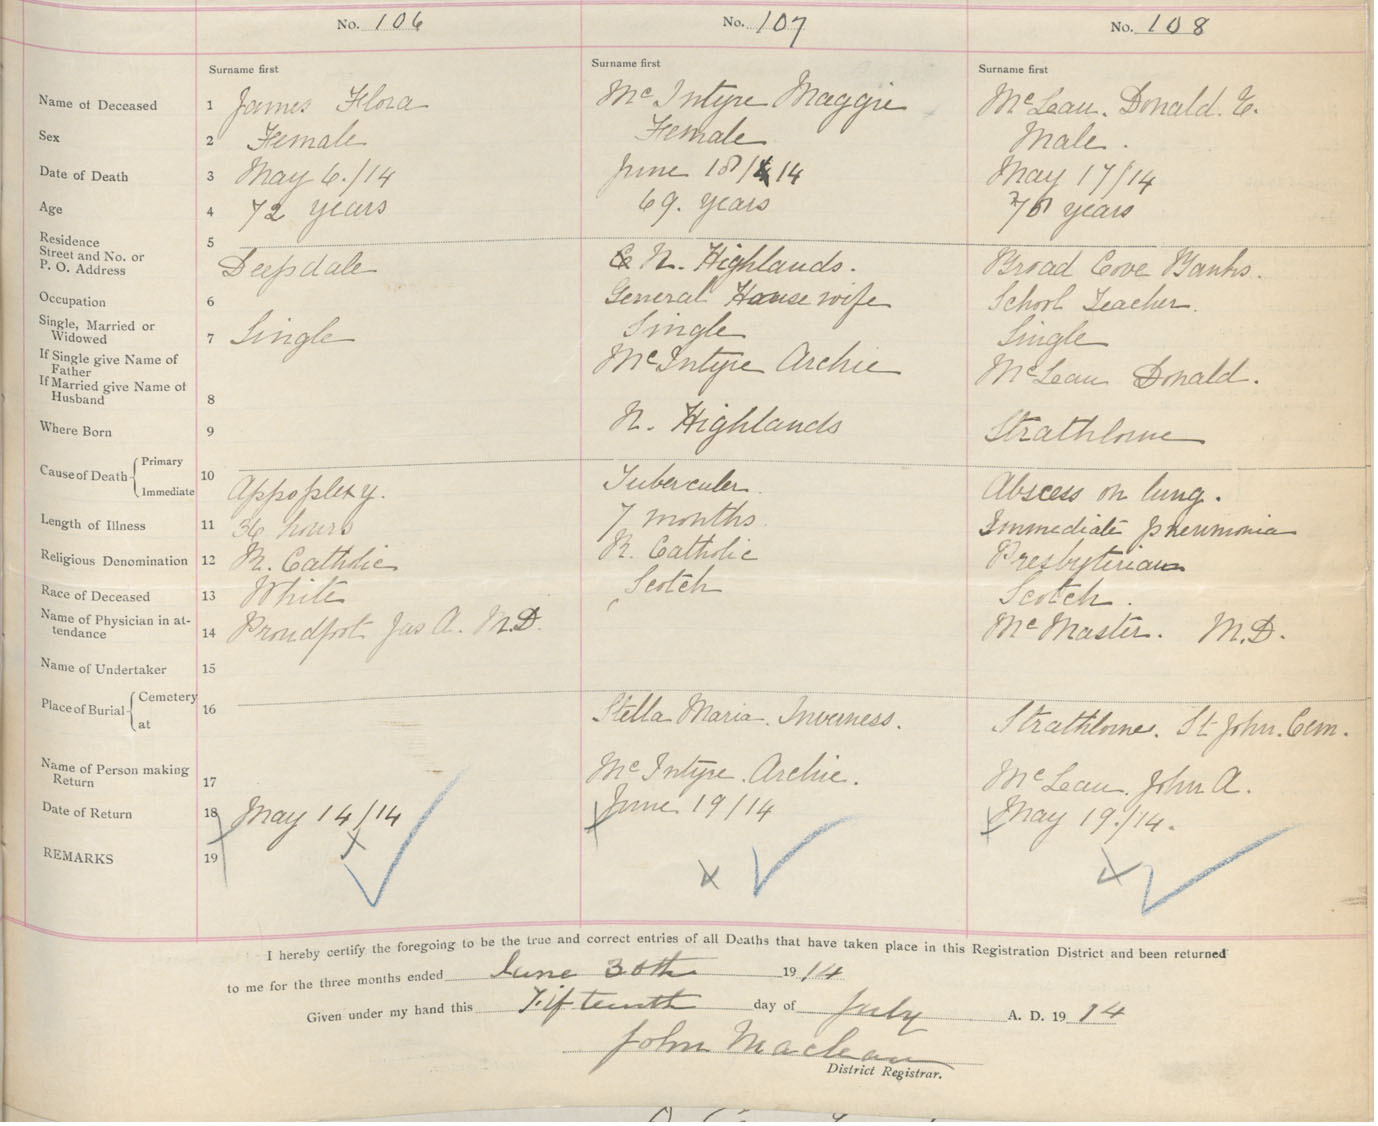 No. 106 No. 107 No. 108
Surname first Surname first Surname first
Name of Deceased 1 James Flora McIntyre Maggie McLean. Donald. E.
Sex 2 Female Female Male.
Date of Death 3 May 6./14 June 18/14 May 17/14
Age 4 72 years 69. years years
Residence 5
Street and No. or
P. O. Address Deepdale N. Highlands. Broad Cove Banks.
Occupation 6 General Housewife School Teacher.
Single, Married or
Widowed 7 Single Single Single
If Single give Name of
Father McIntyre Archie McLean Donald.
If Married give Name of
Husband 8
Where Born 9 N. Highlands Strathlorne
Cause of Death { Primary
Immediate 10 Appoplexy. Tuberculer. Abscess on lung.
Length of Illness 11 36 hours 7 months Immediate pneumonia
Religious Denomination 12 R. Catholic R. Catholic Presbyterian
Race of Deceased 13 White Scotch Scotch.
Name of Physician in at-
tendance 14 Proudfoot Jas A. M.D. McMaster. M.D.
Name of Undertaker 15
Place of Burial { Cemetery
at 16 Stella Maria. Inverness. Strathlorne. St John. Cem.
Name of Person making
Return 17 McIntyre. Archie. McLean. John A.
Date of Return 18 May 14/14 June 19/14 May 19./14.
REMARKS 19
I hereby certify the foregoing to be the true and correct entries of all Deaths that have taken place in this Registration District and been returned
to me for the three months ended June 30th 1914
Given under my hand this Fifteenth day of July A. D. 1914
John Maclean
District Registrar.